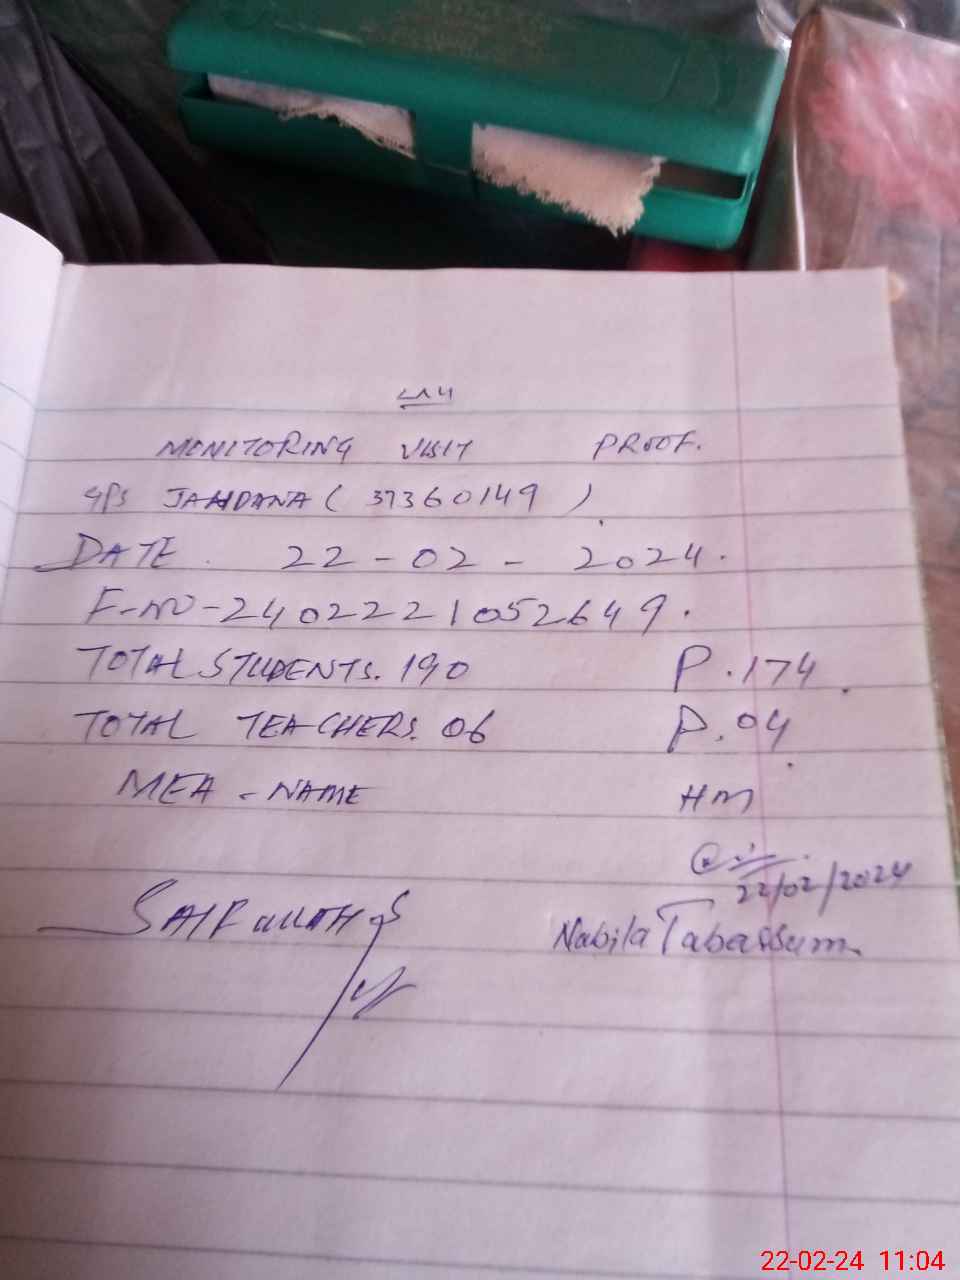 MONITORING VISIT PROOF.
GPS JANDANA ( 37360149 )
DATE . 22 - 02 - 2024.
F-NO-2402221052649.
TOTAL STUDENTS. 190 P. 174
TOTAL TEACHERS. 06 P. 04
MEA - NAME HM
22/02/2024
SAIFULLAH
Nabila Tabassum
22-02-24 11:04